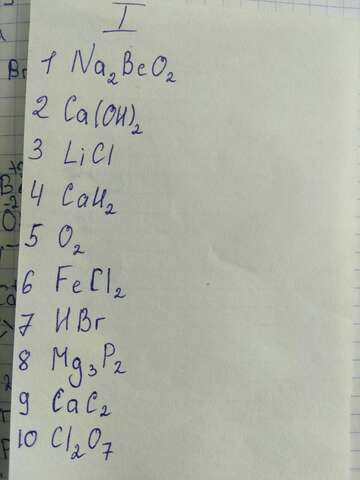 I
1 Na₂BeO₂
2 Ca(OH)₂
3 LiCl
4 CaH₂
5 O₂
6 FeCl₂
7 HBr
8 Mg₃P₂
9 CaC₂
10 Cl₂O₇